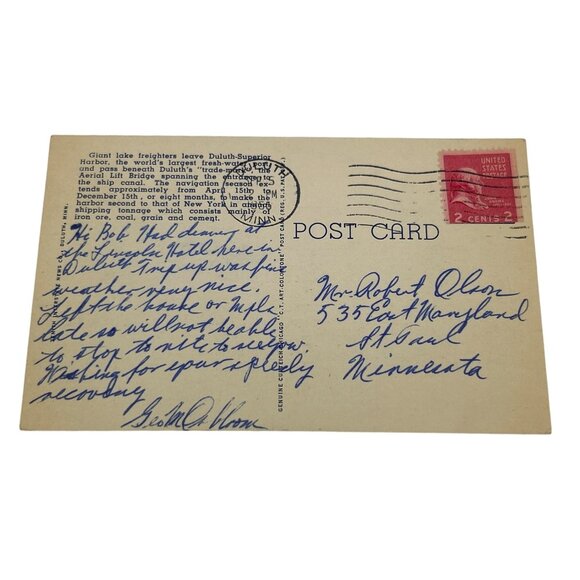 Giant lake freighters leave Duluth-Superior
Harbor, the world's largest fresh-water port
and pass beneath Duluth's "trade-mark," the
Aerial Lift Bridge spanning the entrance to
the ship canal. The navigation season ex-
tends approximately from April 15th to
December 15th, or eight months, to make the
harbor second to that of New York in annual
shipping tonnage which consists mainly of
iron ore, coal, grain and cement.
Hi Bob. Had dinner at
the Lincoln Hotel here in
Duluth Trip up was fine
weather very nice.
Left the house or Mpls
late so will not be able
to stop to nite to see you.
Wishing for your speedy
recovery
Geo
NEWS CO., DULUTH, MINN.
GENUINE CURTEICH-CHICAGO "C.T. ART-COLORTONE" POST CARD (REG. U.S. PAT. OFF.)
DULUTH
PM
MINN
UNITED
STATES
2 CENTS 2
POST CARD
Mr. Robert Olson
535 East Maryland
St Paul
Minnesota